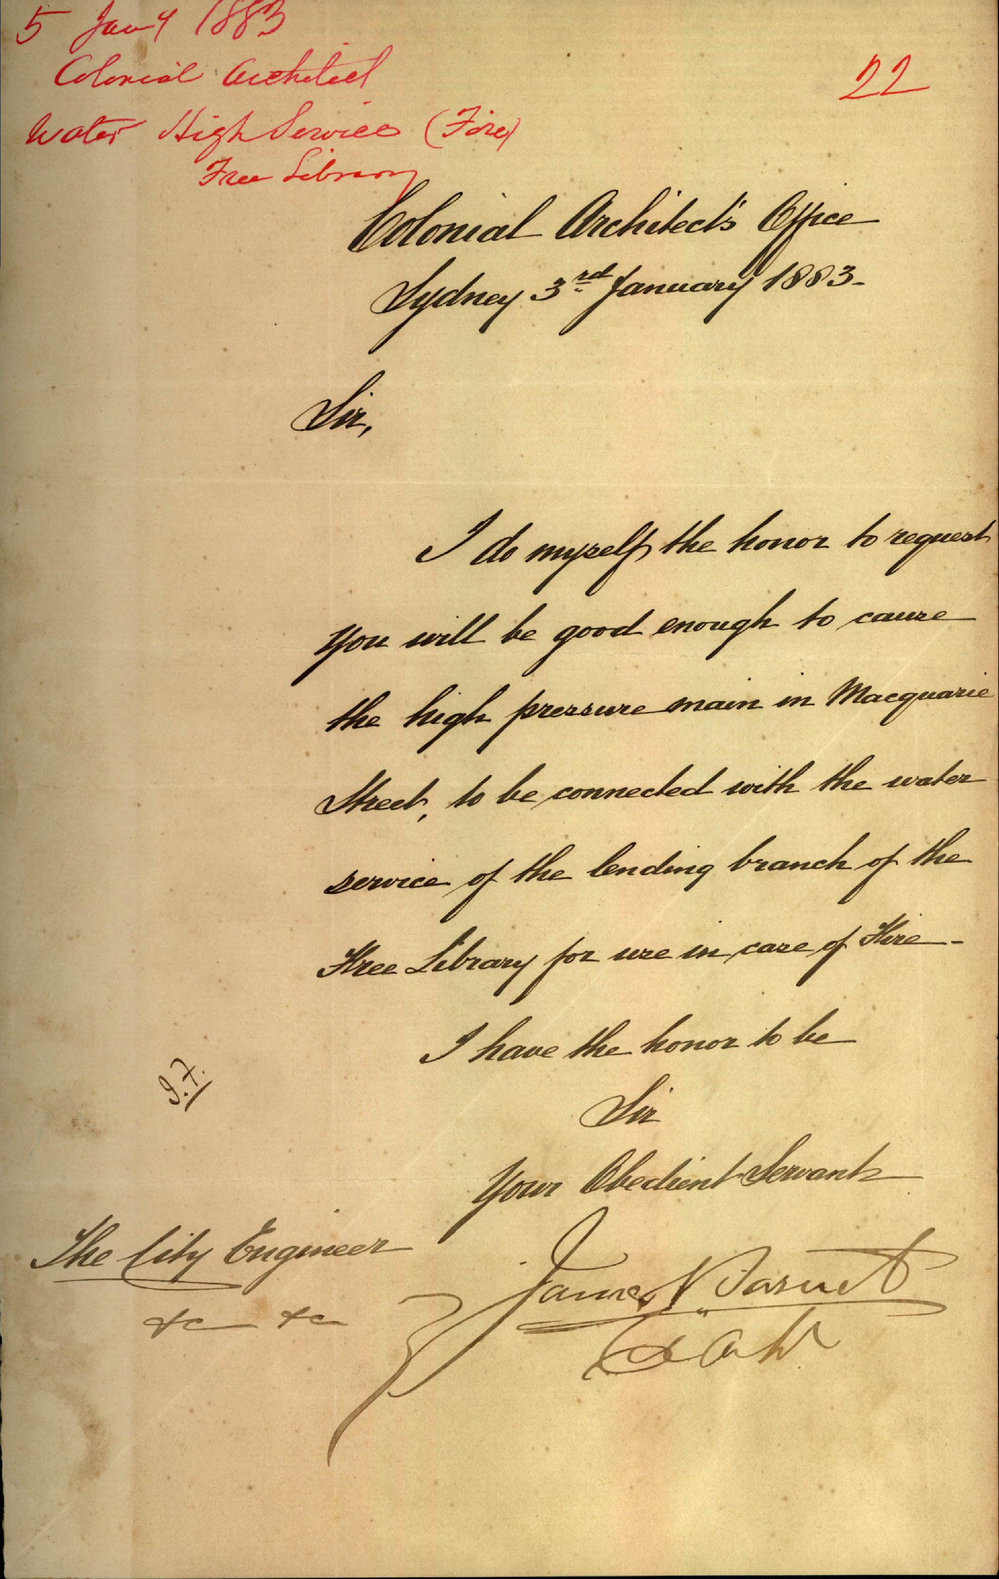 5 Jany 1883
Colonial Architect
Water High Service (Fire)
Free Library
22
Colonial Architect's Office
Sydney 3rd January 1883-
Sir,
I do myself the honor to request
You will be good enough to cause
the high pressure main in Macquarie
Street, to be connected with the water
service of the lending branch of the
Free Library for use in case of Fire-
I have the honor to be
Sir
Your Obedient Servant
James Barnet
Col Arch
J.F.
The City Engineer
&c &c